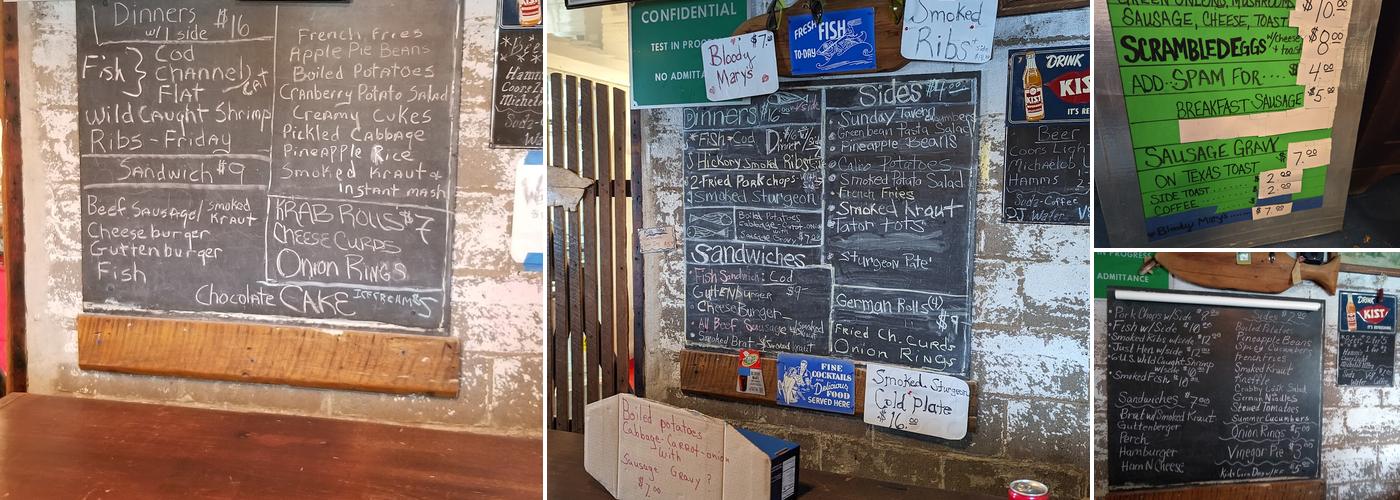 Dinners
w/1 side $16
Fish } Cod
Channel Cat
Flat
Wild Caught Shrimp
Ribs - Friday
Sandwich $9
Beef Sausage/ smoked Kraut
Cheeseburger
Guttenburger
Fish
French Fries
Apple Pie Beans
Boiled Potatoes
Cranberry Potato Salad
Creamy Cukes
Pickled Cabbage
Pineapple Rice
Smoked Kraut
Instant mash
KRAB ROLLS $7
CHEESE CURDS
ONION RINGS
Chocolate CAKE ICECREAM $5
CONFIDENTIAL
TEST IN PROG
NO ADMITTA
Bloody Marys $7.
FRESH FISH
TO-DAY
Smoked
Ribs
Dinners $16
Fish - Cod
Hickory Smoked Ribs
2-Fried Porkchops
Smoked Sturgeon
Boiled Potatoes
Cabbage-Carrot-onion
with
Sausage Gravy $7.00
Sandwiches
Fish Sandwich: Cod
Guttenburger $9
Cheeseburger
All Beef Sausage w/smoked
Smoked Brat w/smoked Kraut
Sides $4.00
Green bean Pasta Salad
Pineapple Beans
Calico Potatoes
Smoked Potato Salad
French Fries
Smoked Kraut
Tator Tots
Sturgeon Pate
German Rolls (4)
$9
Fried Ch. Curds
Onion Rings
DRINK
KIST
IT'S RE
Beer
Coors Light
Michaelob U
Hamms
Soda-Coffee
OJ Water
FINE
COCKTAILS
AND
Delicious
FOOD
SERVED HERE
Smoked Sturgeon
Cold Plate
$16.00
Boiled potatoes
Cabbage-Carrot-onion
with
Sausage Gravy?
$7.00
GREEN ONIONS, MUSHROOMS
SAUSAGE, CHEESE, TOAST $10.00
SCRAMBLED EGGS w/cheese & toast $8.00
ADD-SPAM FOR.... $4.00
BREAKFAST SAUSAGE $5.00
SAUSAGE GRAVY
ON TEXAS TOAST $7.00
SIDE TOAST 2.00
COFFEE 2.00
Bloody Marys $7.00
N PROGRESS
ADMITTANCE
Pork Chops w/Side
Fish w/Side $10.00
Smoked Ribs w/side
w/side
Smoked Fish $10
Sandwiches $7.00
Brat w/Smoked Kraut
Guttenberger
Perch
Hamburger
Ham N Cheese
Sides
Boiled Potatoes
Pineapple Beans
Spicy Cucumbers
French Fries
Smoked Kraut
Crabby Cuk Salad
German Noodles
Stewed Tomatoes
Summer Cucumbers
Onion Rings $5.00
Vinegar Pie $3
DRINK
KIST
IT'S REFRESHING